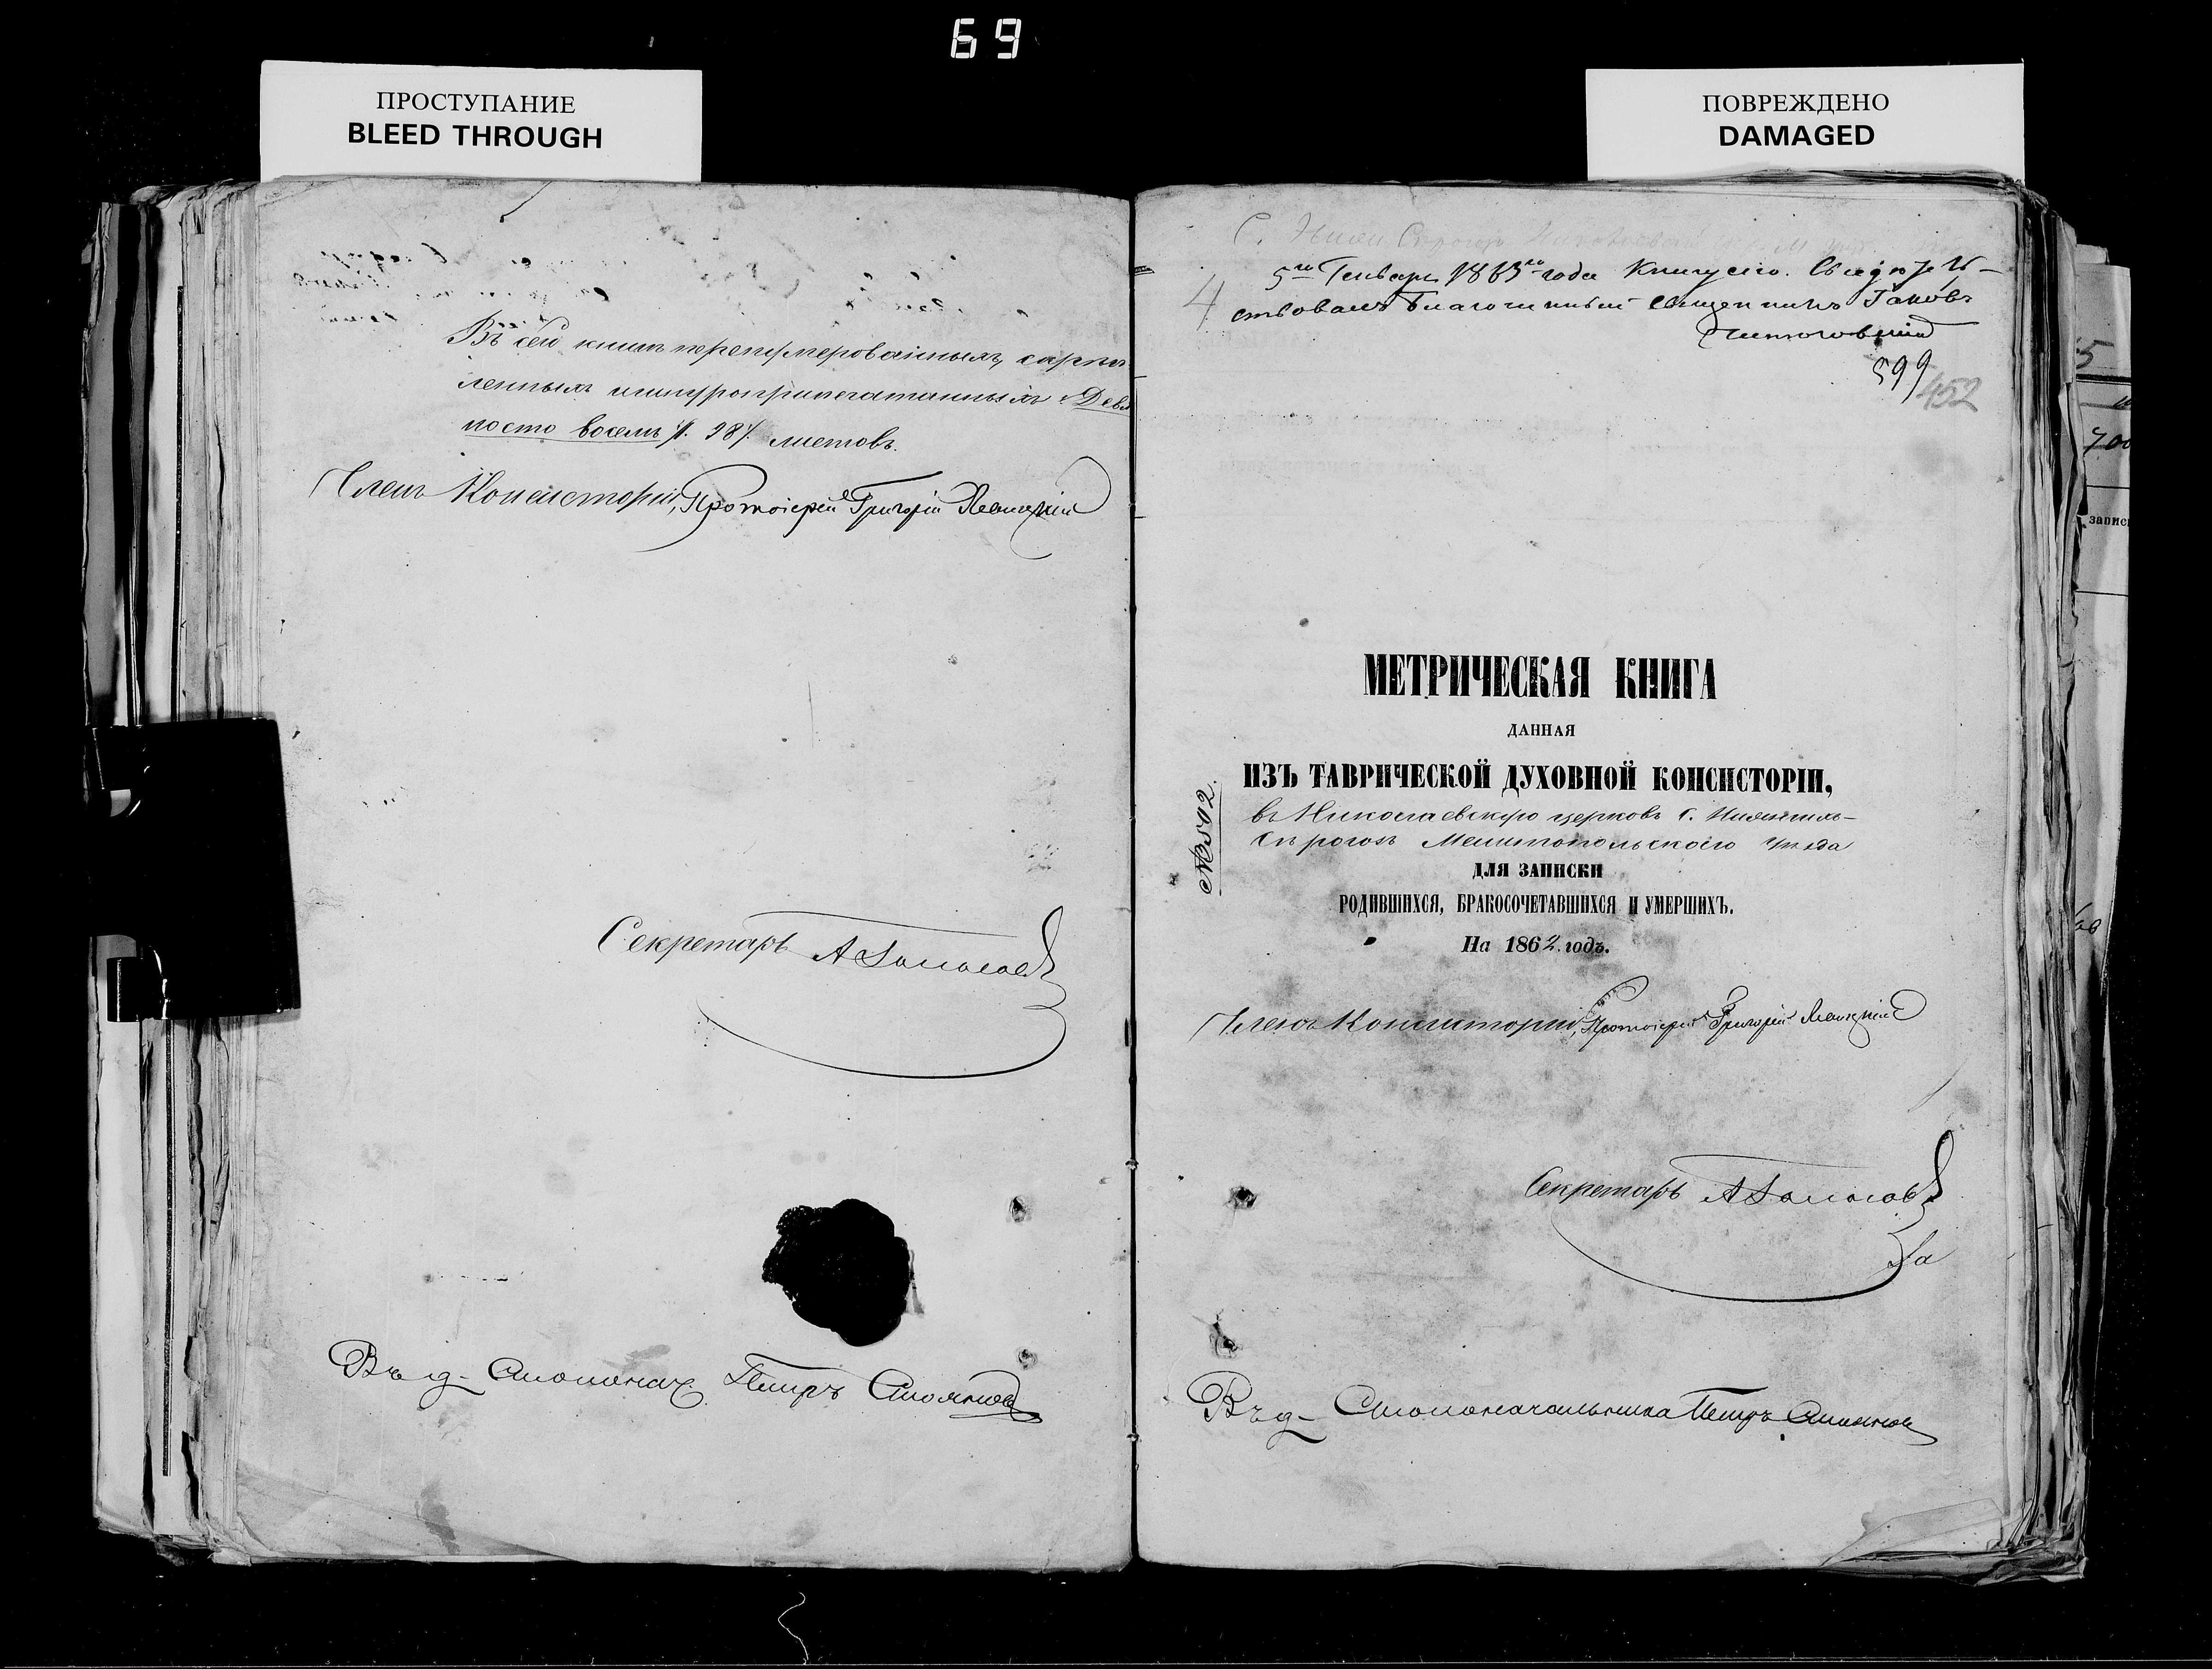 69
ПРОСТУПАНИЕ
BLEED THROUGH
Въ сей книгѣ перенумерованныхъ, скрѣп
ленныхъ и шнуроприпечатанныхъ Девя
носто восемь /. 98 /. листовъ.
Членъ Консисторіи, Протоіерей Григорій
Секретарь А
Въ д- Столонач. Петръ
ПОВРЕЖДЕНО
DAMAGED
С.
5го Генваря 1863го года Книгу сію. Свидѣтель-
4 ствовалъ Благочинный Священникъ Іаковъ
599
452
МЕТРИЧЕСКАЯ КНИГА
ДАННАЯ
ИЗЪ ТАВРИЧЕСКОЙ ДУХОВНОЙ КОНСИСТОРІИ,
въ Николаевскую церковь С. Нижнихъ-
Сѣрогозъ Мелитопольскаго уѣзда
ДЛЯ ЗАПИСКИ
РОДИВШИХСЯ, БРАКОСОЧЕТАВШИХСЯ И УМЕРШИХЪ.
На 1862. годъ.
№ 502.
Членъ Консисторіи, Протоіерей Григорій
Секретарь А
Въ д- Столоначальника Петръ
5
700
запис